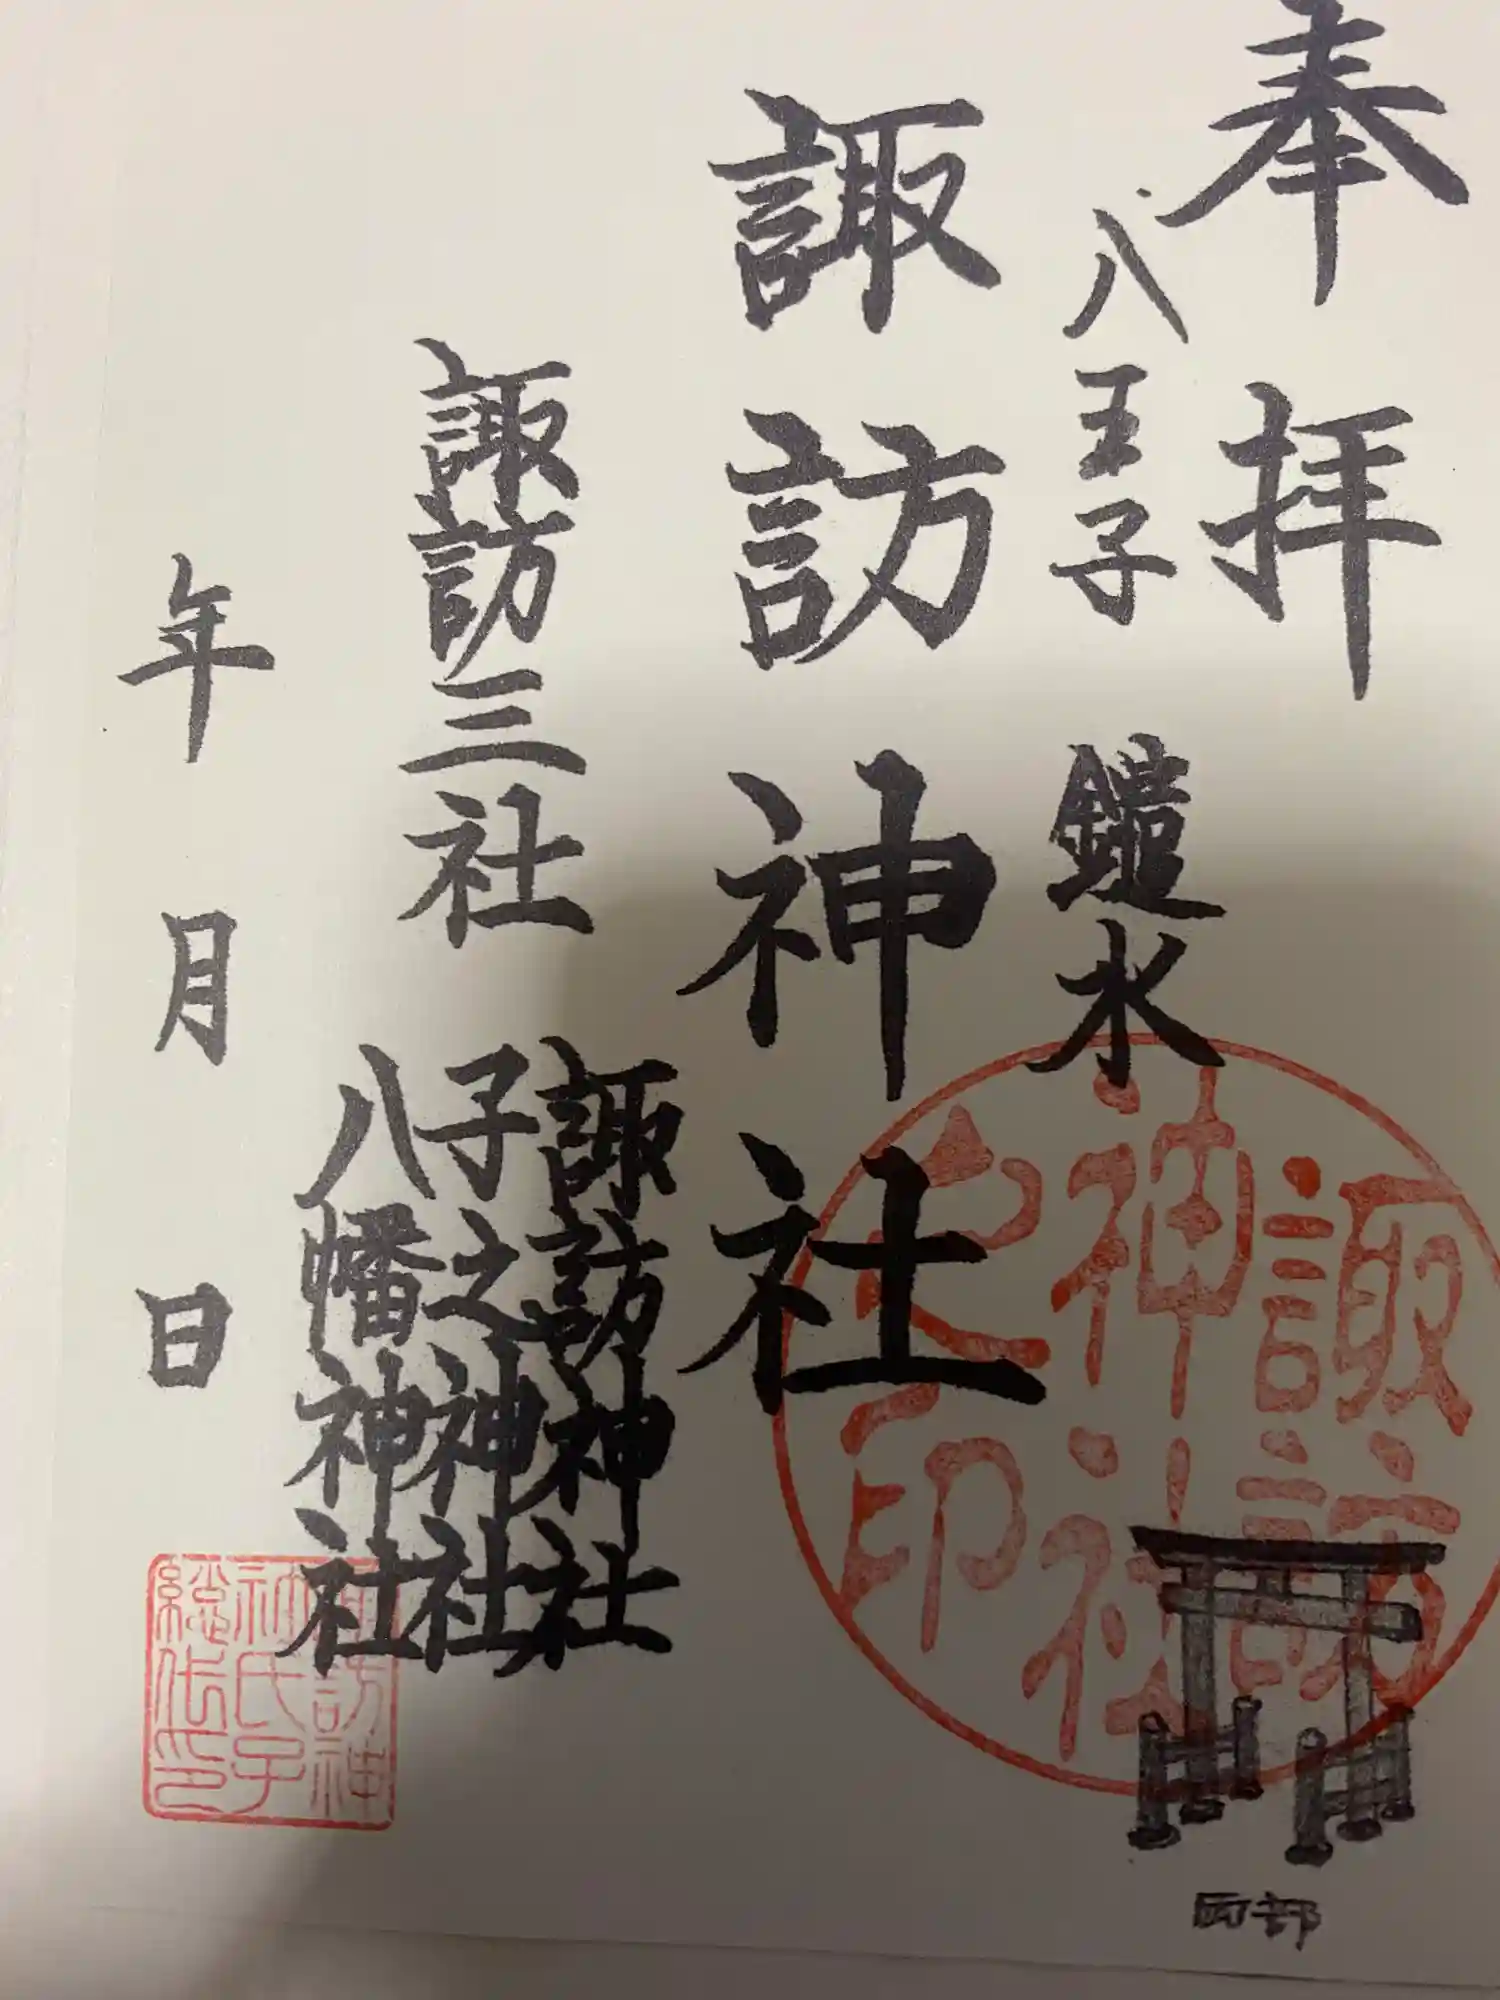 奉拝
八王子 鑓水
諏訪神社
諏訪三社
諏訪神社
子之神社
八幡神社
年 月 日
諏訪
神社
之印
諏訪神
社氏子
総代印
阿部